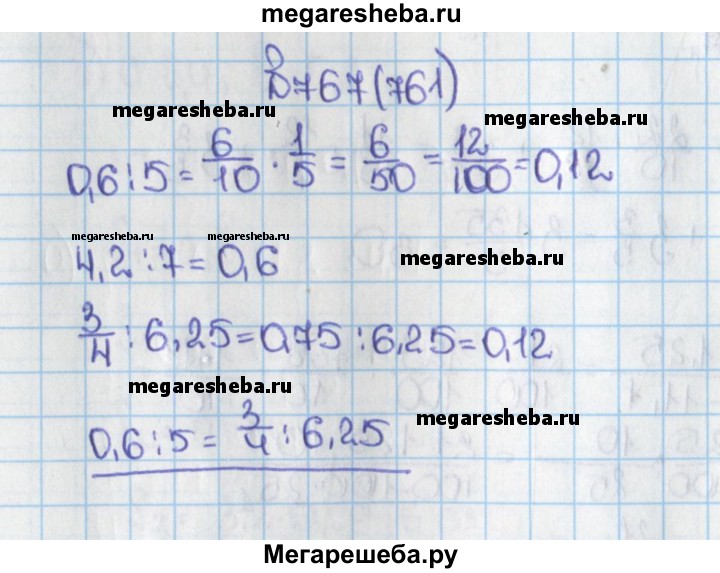 megaresheba.ru
В767(761)
megaresheba.ru megaresheba.ru
0,6:5 = 6/10 · 1/5 = 6/50 = 12/100 = 0,12
megaresheba.ru megaresheba.ru
4,2:7 = 0,6
megaresheba.ru
3/4 : 6,25 = 0,75 : 6,25 = 0,12
megaresheba.ru
megaresheba.ru
0,6:5 = 3/4 : 6,25
Мегарешеба.ру